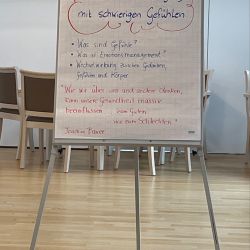 mit schwierigen Gefühlen
• Was sind Gefühle?
• Was ist Emotionsmanagement?
• Wechselwirkung zwischen Gedanken,
Gefühlen und Körper
"Wie wir über uns und andere denken,
kann unsere Gesundheit massiv
beeinflussen - zum Guten
wie zum Schlechten."
Joachim Bauer